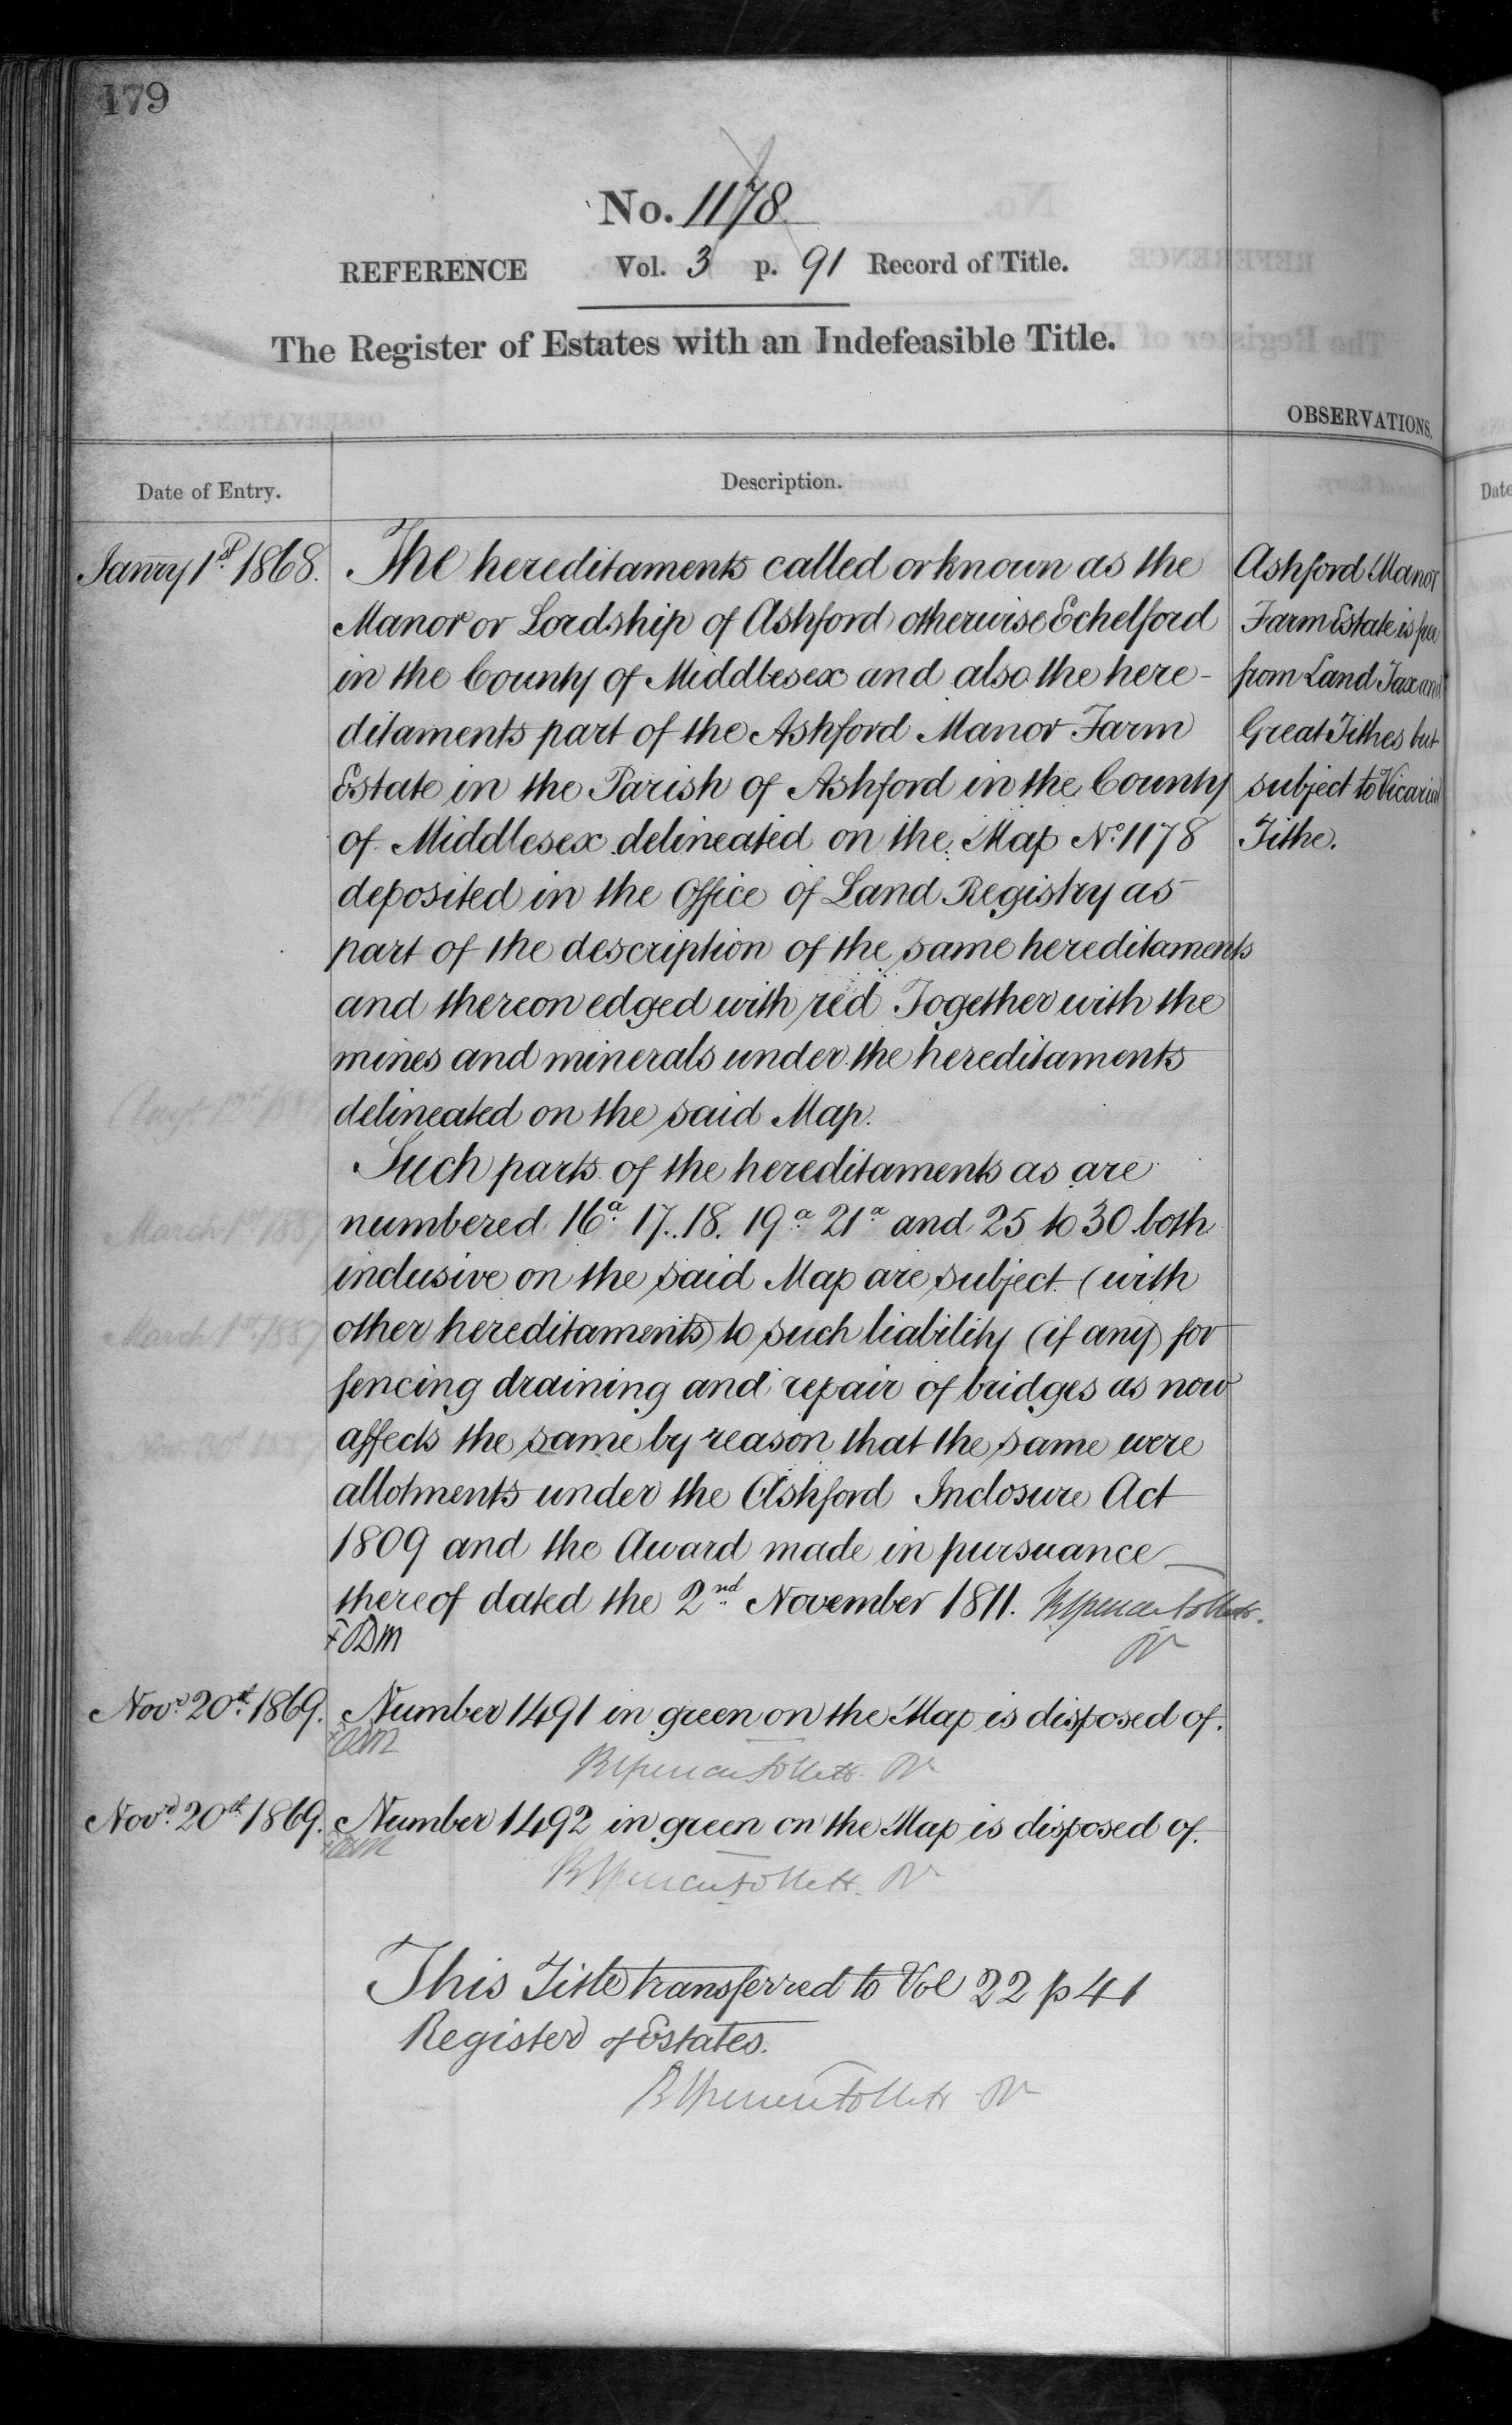 179
No. 1178.
REFERENCE Vol. 3 p. 91 Record of Title.
The Register of Estates with an Indefeasible Title.
OBSERVATIONS.
Date of Entry.
Description.
Janry 1st 1868.
The hereditaments called or known as the
Manor or Lordship of Ashford otherwise Echelford
in the County of Middlesex and also the here-
ditaments part of the Ashford Manor Farm
Estate in the Parish of Ashford in the County
of Middlesex delineated on the Map No. 1178
deposited in the Office of Land Registry as
part of the description of the same hereditaments
and thereon edged with red Together with the
mines and minerals under the hereditaments
delineated on the said Map.
Such parts of the hereditaments as are
numbered 16a 17. 18. 19a 21a and 25 to 30 both
inclusive on the said Map are subject (with
other hereditaments) to such liability (if any) for
fencing draining and repair of bridges as now
affects the same by reason that the same were
allotments under the Ashford Inclosure Act
1809 and the Award made in pursuance
thereof dated the 2nd November 1811.
Ashford Manor
Farm Estate is free
from Land Tax and
Great Tithes but
subject to Vicarial
Tithe.
Novr 20th 1869. Number 1491 in green on the Map is disposed of.
Novr 20th 1869. Number 1492 in green on the Map is disposed of.
This Title transferred to Vol 22 p 41
Register of Estates.
Date